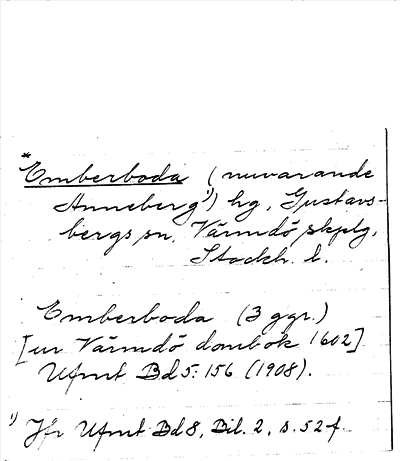 *Emberboda (nuvarande
Anneberg¹⁾) hg, Gustavs-
bergs sn, Värmdö skplg,
Stockh. l.
Emberboda (3 ggr.)
[ur Värmdö dombok 1602]
Ufmt Bd 5: 156 (1908).
¹⁾ Jfr Ufmt Bd 8, Bil. 2, s. 52 f.